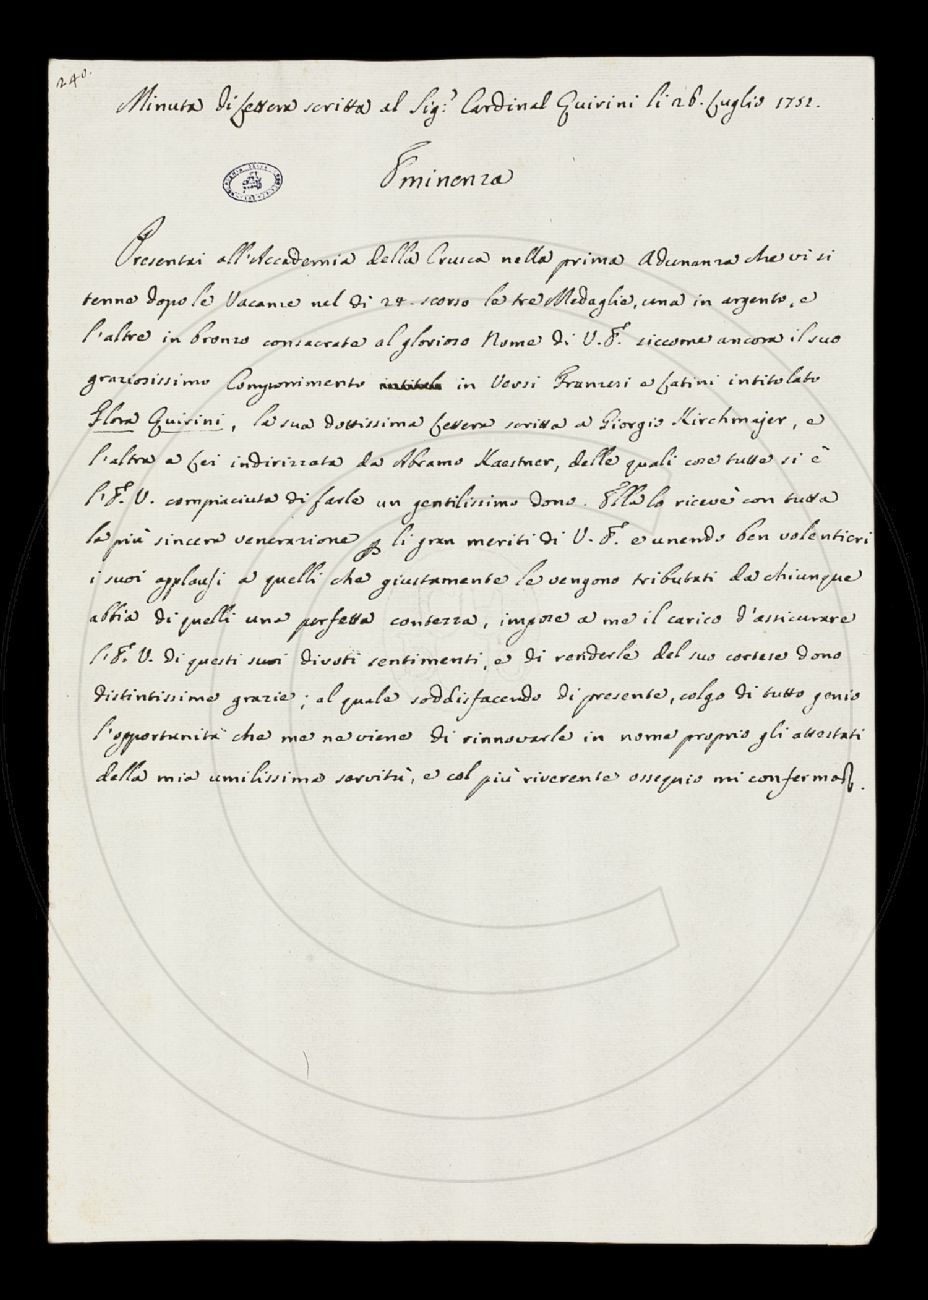 240.
Minuta di Lettera scritta al Sig.r Cardinal Quirini li 26. Luglio 1751.
Eminenza
Presentai all'Accademia della Crusca nella prima Adunanza che vi si
tenne dopo le Vacanze nel dì 24. scorso le tre Medaglie, una in argento, e
l'altre in bronzo consacrate al glorioso Nome di V. E. siccome ancora il suo
graziosissimo Componimento in Versi Franzesi e Latini intitolato
Flora Quirini, la sua dottissima Lettera scritta a Giorgio Kirchmajer, e
l'altra a Lei indirizzata da Abramo Kaestner, delle quali cose tutte si è
l'E. V. compiaciuta di farle un gentilissimo dono. Ella lo ricevè con tutta
la più sincera venerazione li gran meriti di V. E. e unendo ben volentieri
i suoi applausi a quelli che giustamente le vengono tributati da chiunque
abbia di quelli una perfetta contezza, impose a me il carico d'assicurare
l'E. V. di questi suoi divoti sentimenti, e di renderle del suo cortese dono
distintissime grazie; al quale soddisfacendo di presente, colgo di tutto genio
l'opportunità che me ne viene di rinnovarle in nome proprio gli attestati
della mia umilissima servitù, e col più riverente ossequio mi confermo